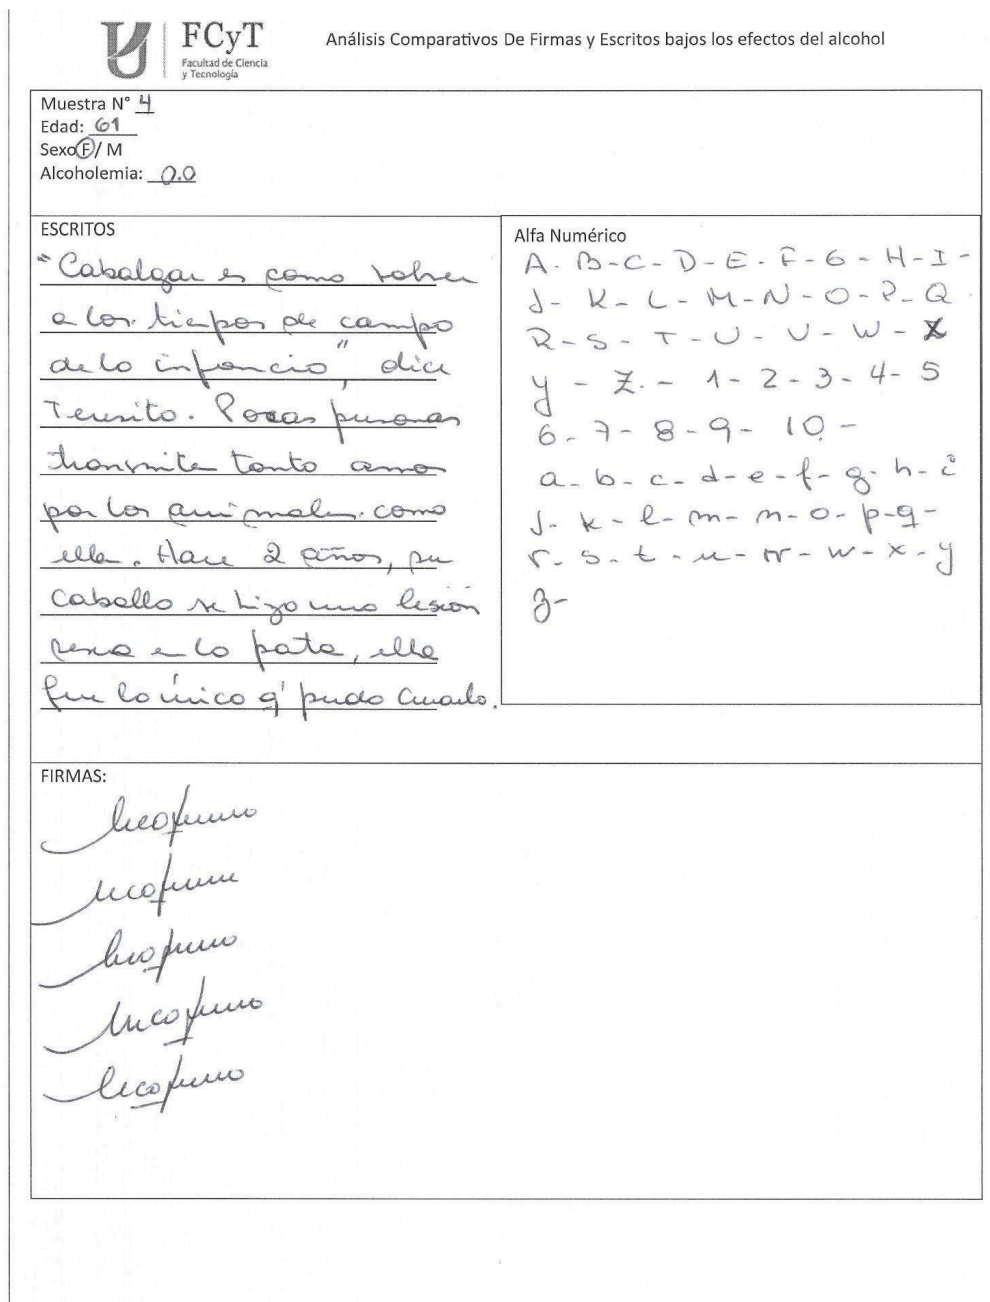 FCyT
Facultad de Ciencia
y Tecnología
Análisis Comparativos De Firmas y Escritos bajos los efectos del alcohol
Muestra N° 4
Edad: 61
Sexo F / M
Alcoholemia: 0.0
ESCRITOS
"Cabalgar es como volver
a los tiempos de campo
de la infancia", dice
Teresita. Pocas personas
transmiten tanto amor
por los animales como
ella. Hace 2 años, su
caballo se hizo una lesión
seria en la pata, ella
fue la único q' pudo curarlo.
Alfa Numérico
A - B - C - D - E - F - G - H - I -
J - K - L - M - N - O - P - Q
R - S - T - U - V - W - X
y - Z - 1 - 2 - 3 - 4 - 5
6 - 7 - 8 - 9 - 10 -
a - b - c - d - e - f - g - h - i
j - k - l - m - n - o - p - q -
r - s - t - u - v - w - x - y
z -
FIRMAS: